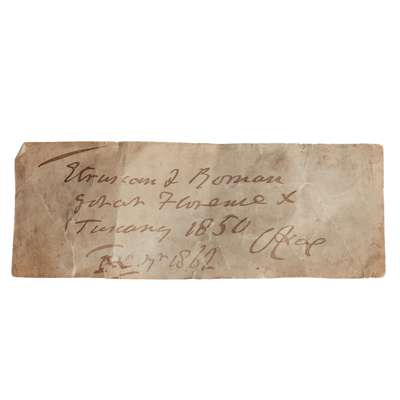 Etruscan & Roman
got at Florence &
Tuscany 1850
1862